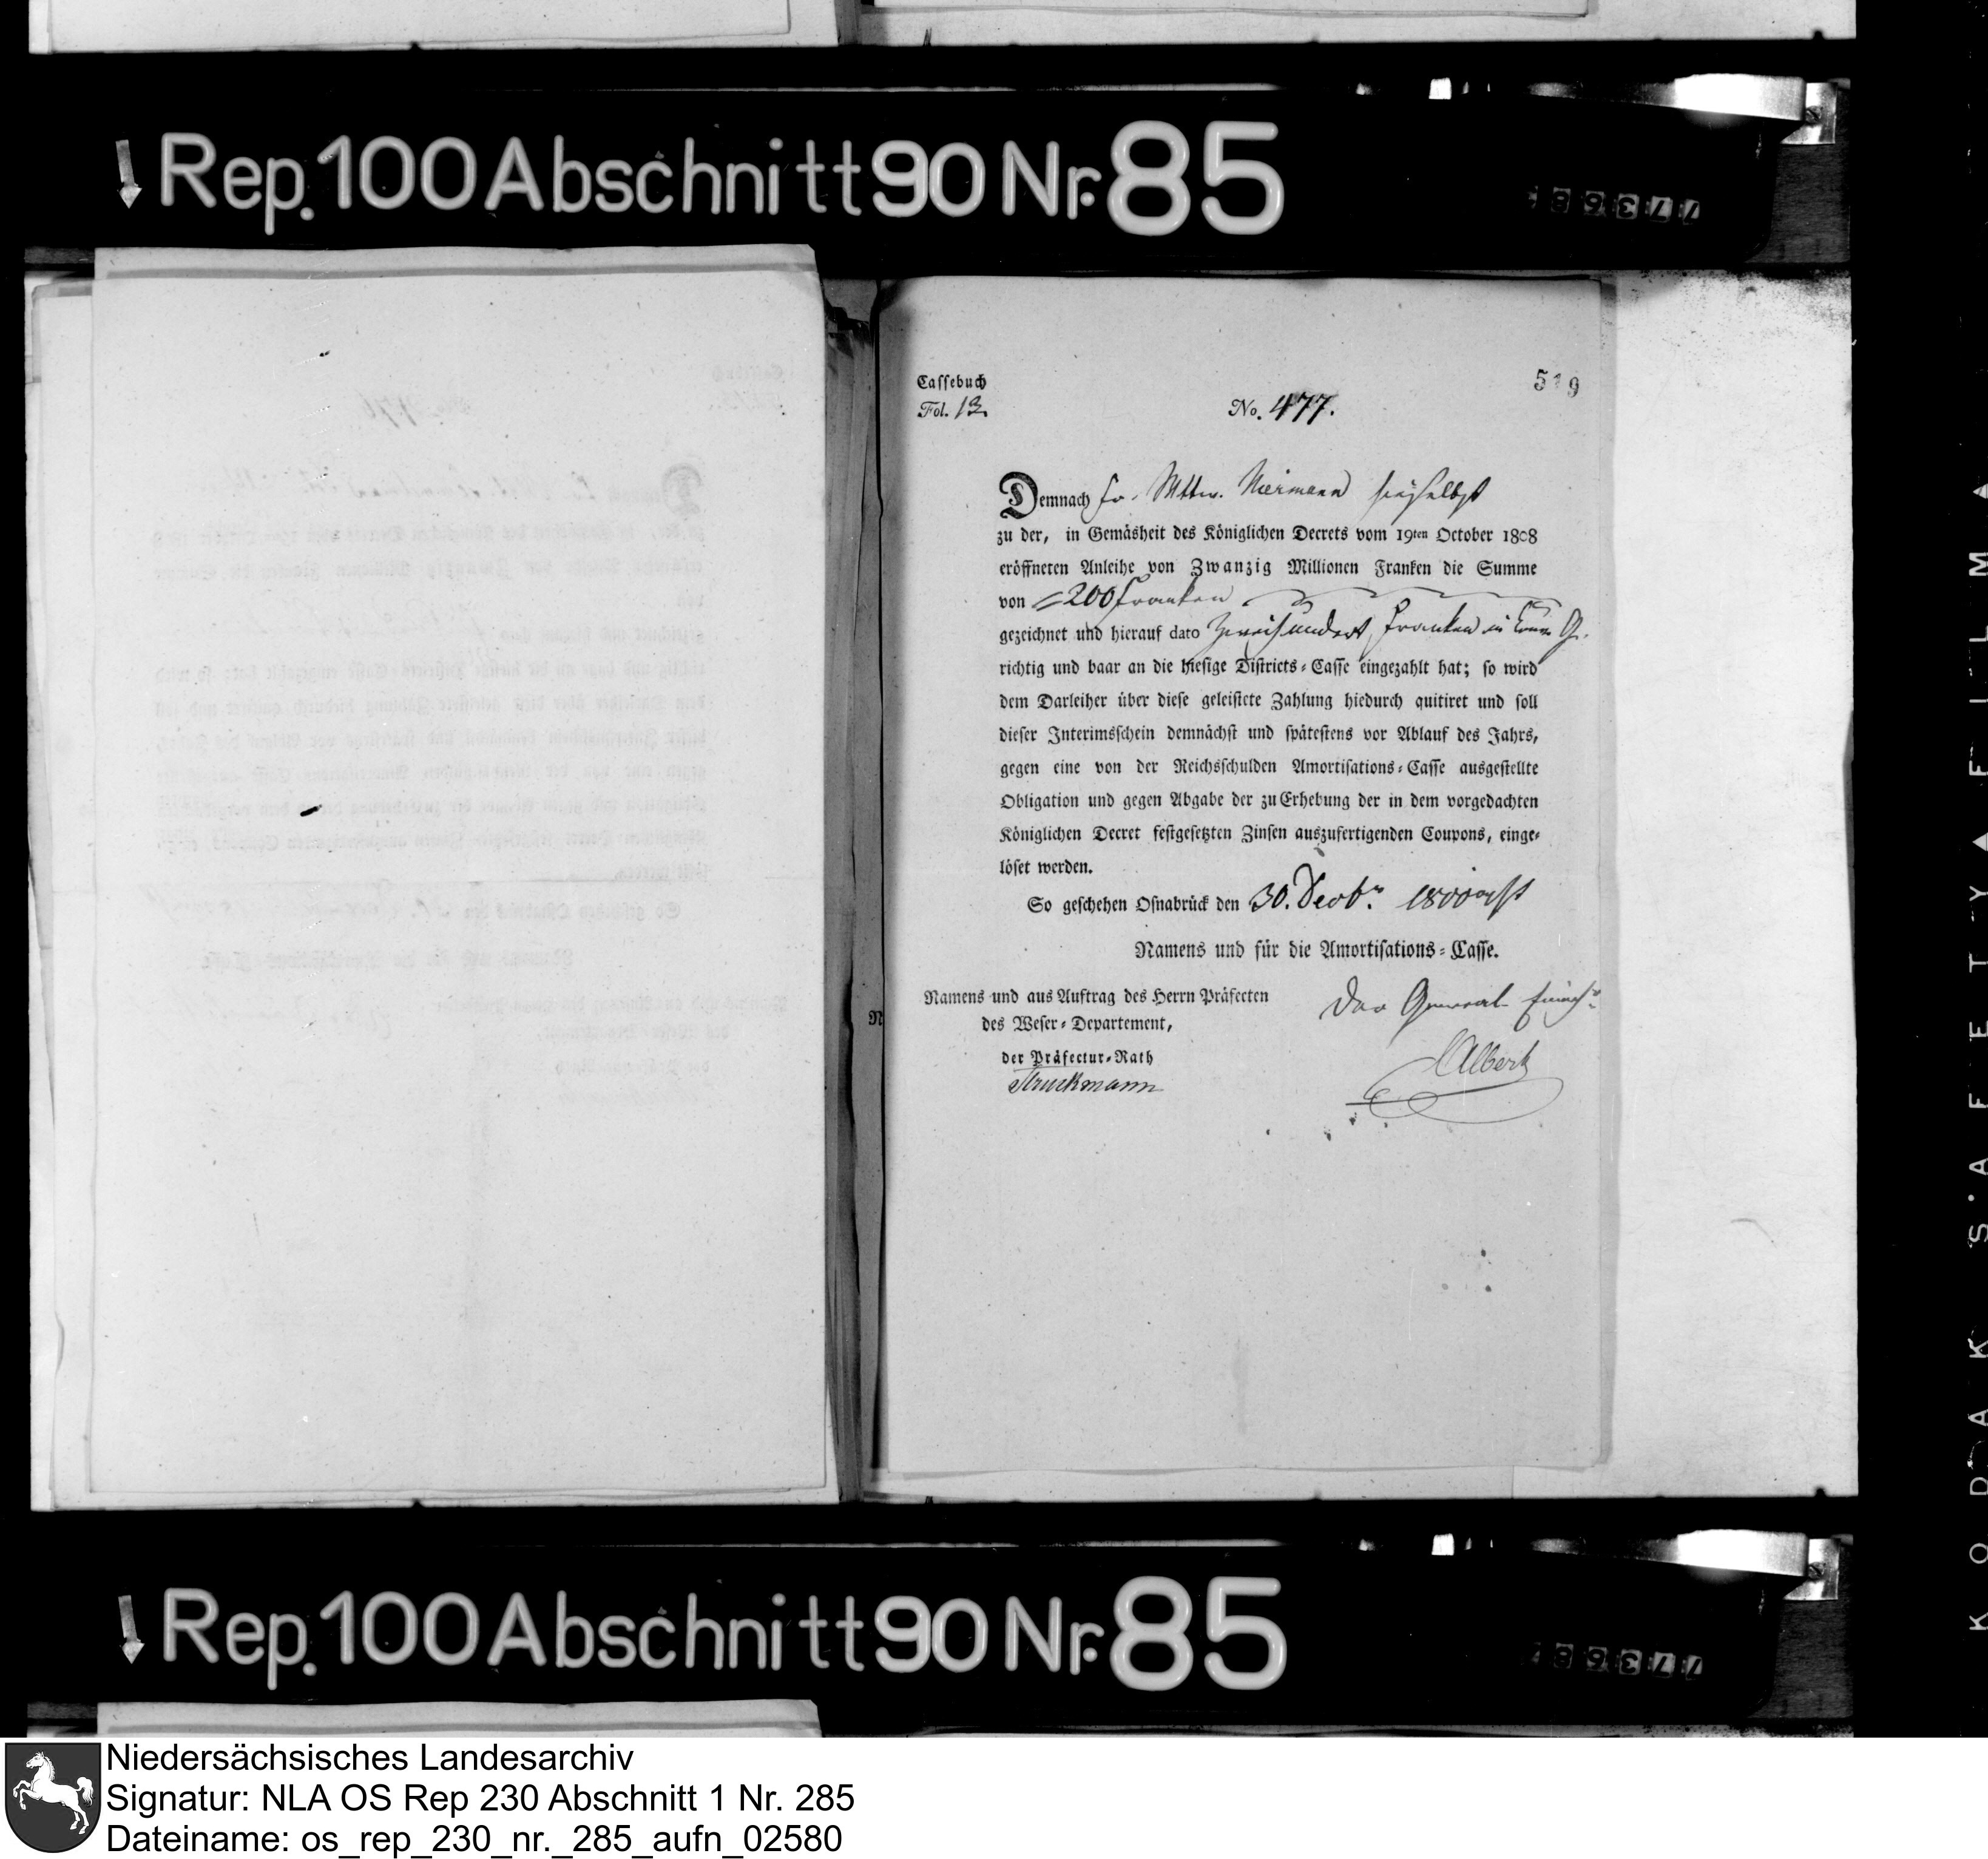 Rep.100 Abschnitt 90 Nr. 85
Cassebuch
Fol. 13.
No. 477.
Demnach Fr. Wttw. Niermann hieselbst
zu der, in Gemäsheit des Königlichen Decrets vom 19ten October 1808
eröffneten Anleihe von Zwanzig Millionen Franken die Summe
von 200 Franken
gezeichnet und hierauf dato Zweihundert Franken in
richtig und baar an die hiesige Districts-Casse eingezahlt hat; so wird
dem Darleiher über diese geleistete Zahlung hiedurch quitiret und soll
dieser Interimsschein demnächst und spätestens vor Ablauf des Jahrs,
gegen eine von der Reichsschulden Amortisations-Casse ausgestellte
Obligation und gegen Abgabe der zu Erhebung der in dem vorgedachten
Königlichen Decret festgesetzten Zinsen auszufertigenden Coupons, einge-
löset werden.
So geschehen Osnabrück den 30. Decbr. 1800acht
Namens und für die Amortisations-Casse.
Namens und aus Auftrag des Herrn Präfecten
des Weser-Departement,
der Präfectur-Rath
Struckmann
Der General
Albers
Rep.100 Abschnitt 90 Nr. 85
KODAK SAFETY FILM
Niedersächsisches Landesarchiv
Signatur: NLA OS Rep 230 Abschnitt 1 Nr. 285
Dateiname: os_rep_230_nr._285_aufn_02580